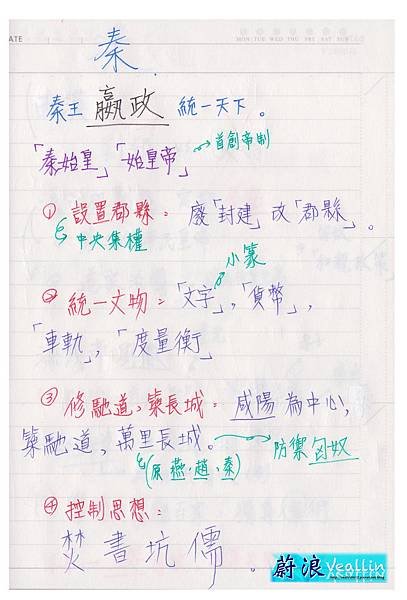 ATE
MON TUE WED THU FRI SAT SUN
秦
秦王 嬴政 統一天下。
「秦始皇」「始皇帝」→首創帝制
① 設置郡縣：廢「封建」改「郡縣」。
中央集權
小篆
② 統一文物：「文字」,「貨幣」,
「車軌」,「度量衡」
③ 修馳道、築長城：咸陽為中心,
築馳道,萬里長城。→防禦匈奴
(原燕、趙、秦)
④ 控制思想：
焚書坑儒。
蔚浪 Veallin